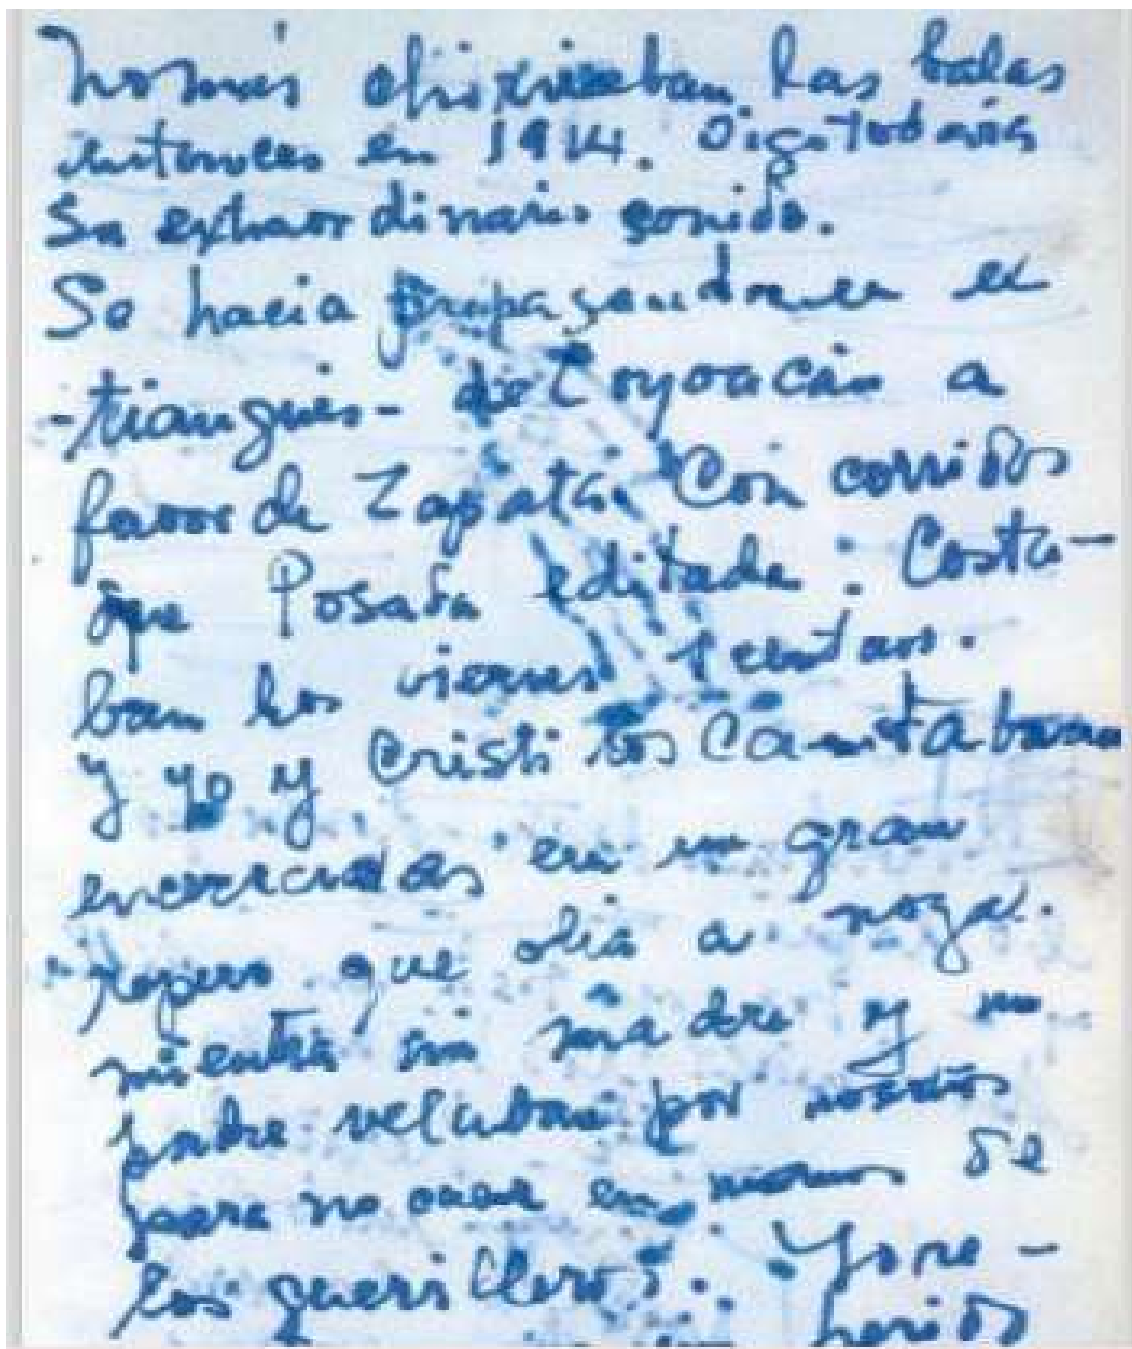 nomás chirriaban las balas
entonces en 1914. Oigo todavia
su extraordinario sonido.
Se hacia propaganda en el
-tianguis- de Coyoacán a
favor de Zapata. Con corridos
que Posada editada. Costa-
ban los viernes 1 centavo.
y yo y Cristi los Cantabamos
encerradas en un gran
ropero que olia a nogal.
mientras mi madre y mi
padre velaban por nosotros
para no caer en manos de
los guerrilleros.
herido